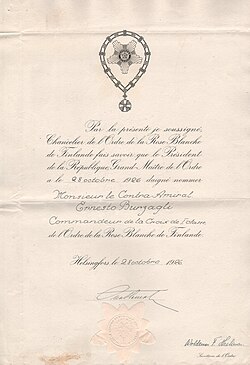 Par la présente je soussigné,
Chancelier de l'Ordre de la Rose Blanche
de Finlande fais savoir que le Président
de la République, Grand-Maître de l'Ordre
a le 28 octobre 1926 daigné nommer
Monsieur le Contre Amiral
Ernesto Burzagli
Commandeur de la Croix de
de l'Ordre de la Rose Blanche de Finlande.
Helsingfors le 28 octobre 1926